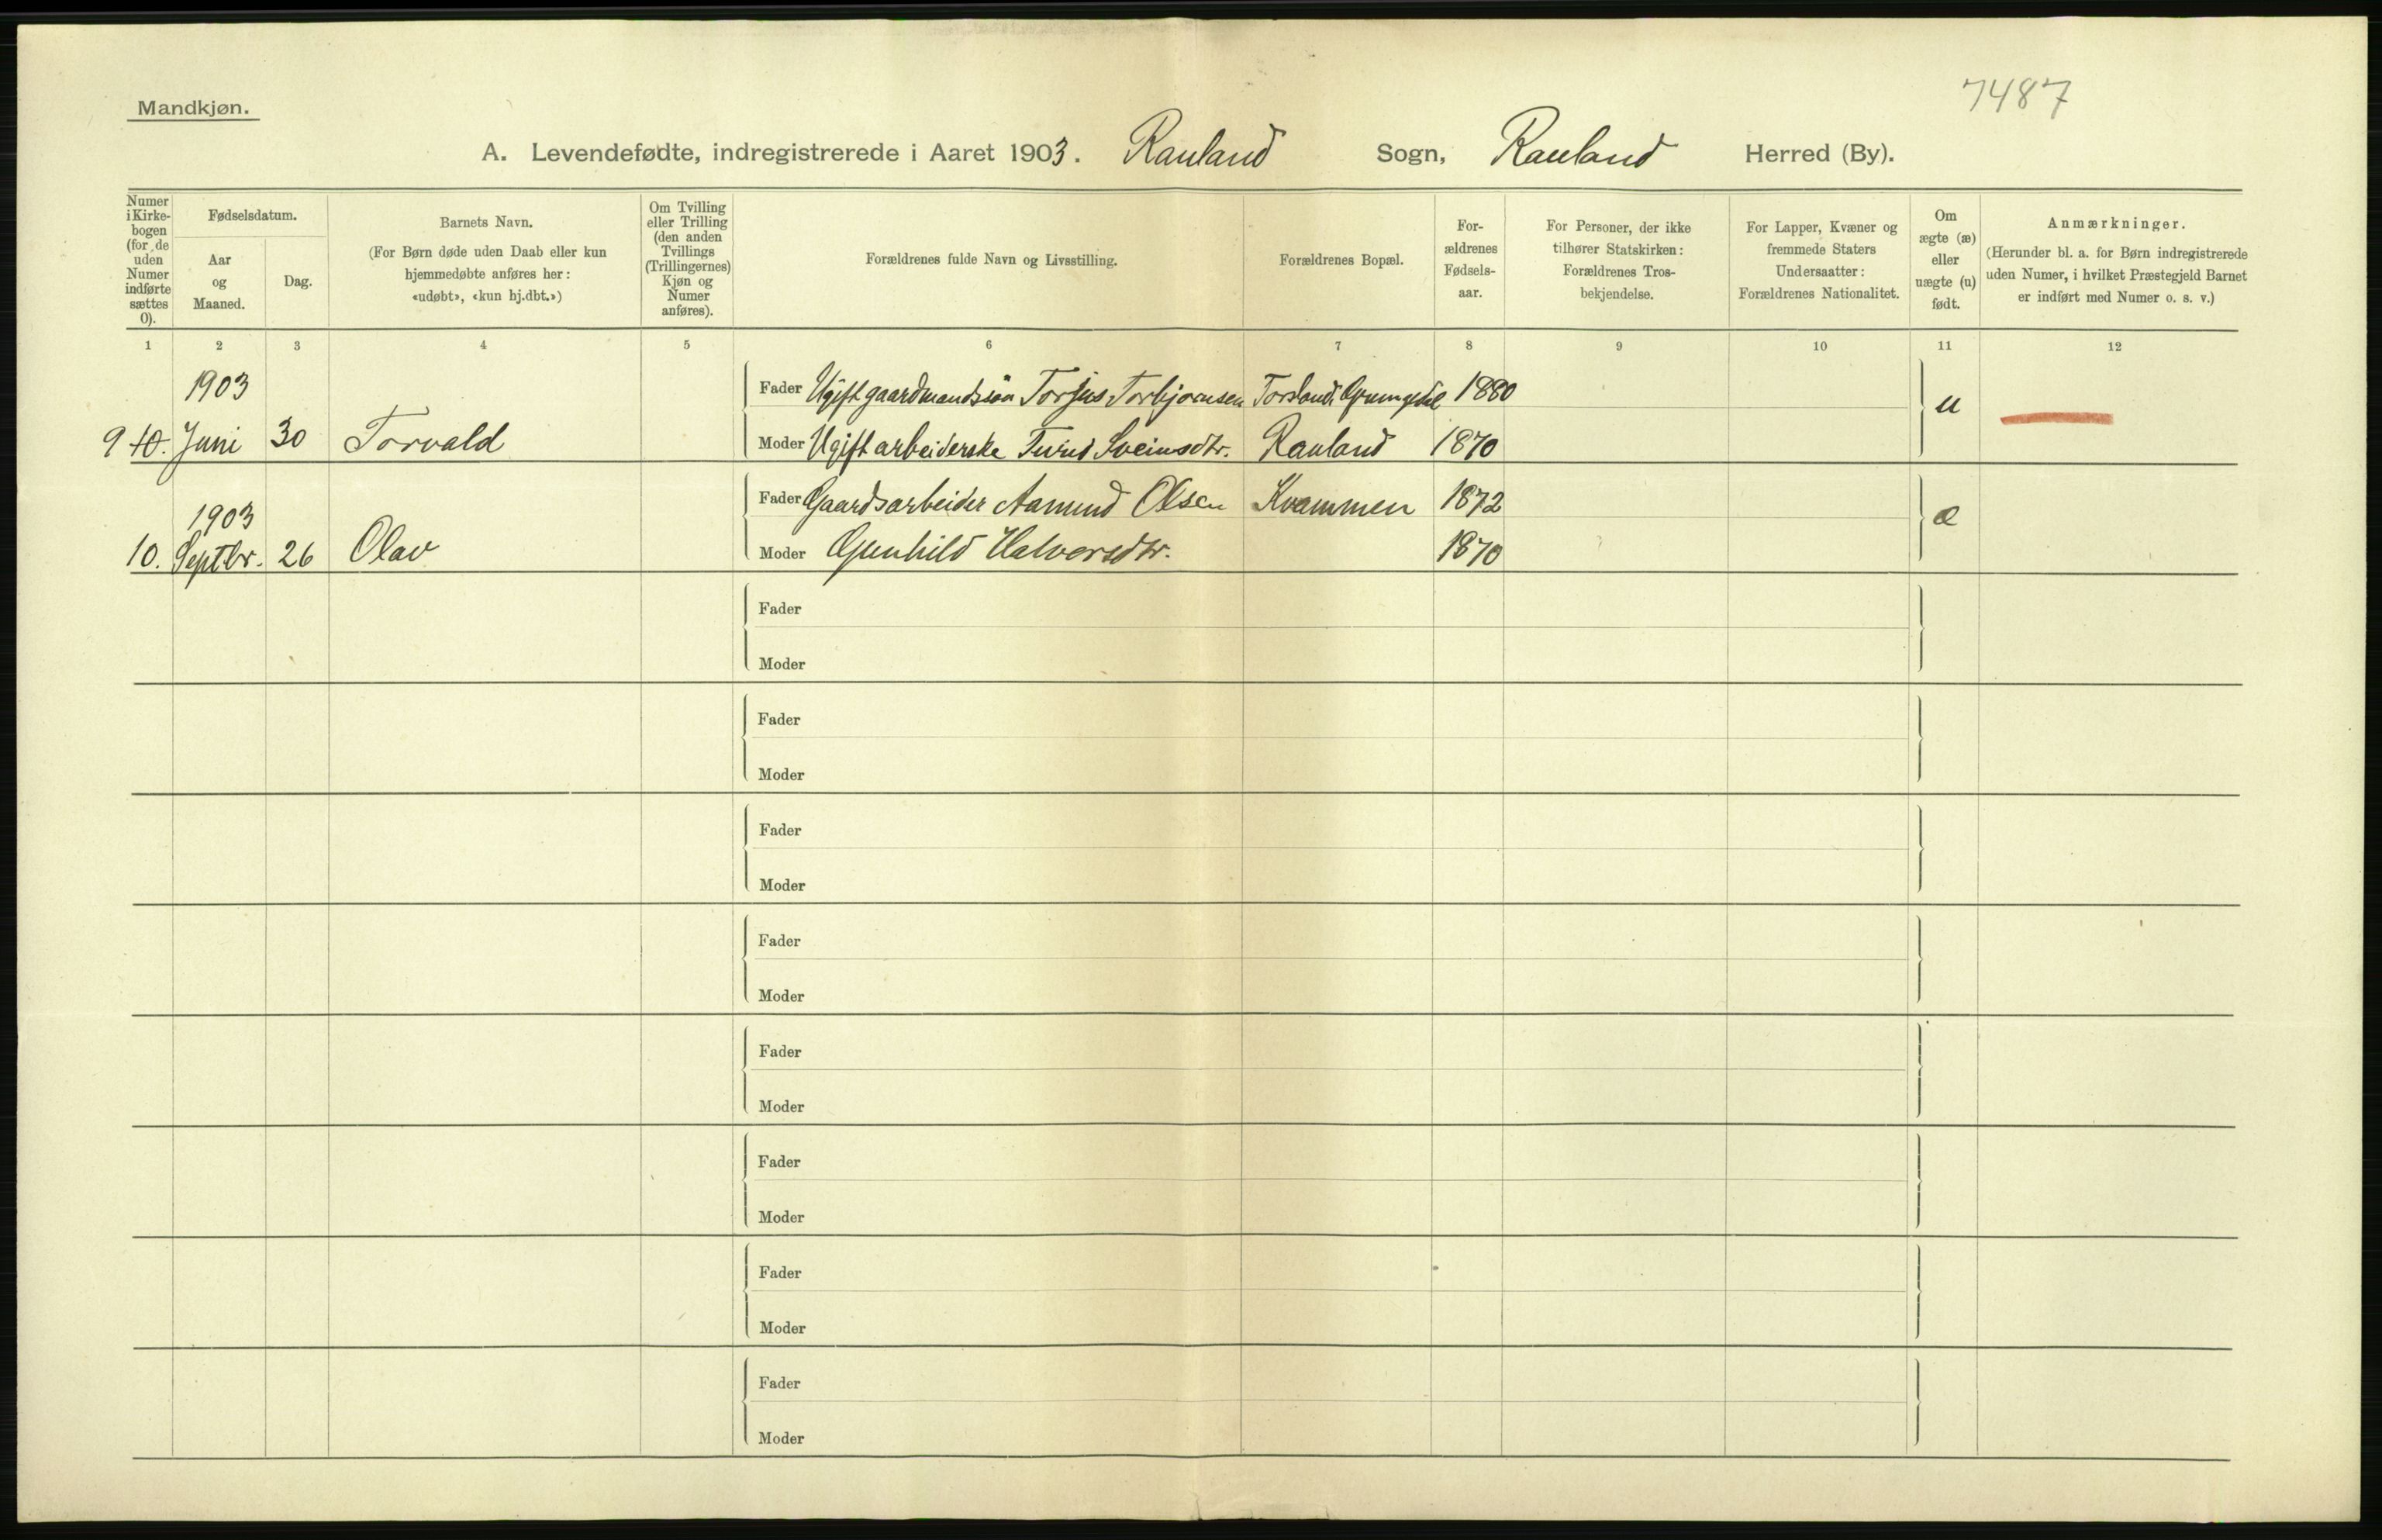 7487
Mandkjøn.
A. Levendefødte, indregistrerede i Aaret 1903. Rauland Sogn, Rauland Herred (By).
Numer
i Kirke-
bogen
(for de
uden
Numer
indførte
sættes
0).
Fødselsdatum.
Aar
og
Maaned.
Dag.
Barnets Navn.
(For Børn døde uden Daab eller kun
hjemmedøbte anføres her:
«udøbt», «kun hj.dbt.»)
Om Tvilling
eller Trilling
(den anden
Tvillings
(Trillingernes)
Kjøn og
Numer
anføres).
Forældrenes fulde Navn og Livsstilling.
Forældrenes Bopæl.
For-
ældrenes
Fødsels-
aar.
For Personer, der ikke
tilhører Statskirken:
Forældrenes Tros-
bekjendelse.
For Lapper, Kvæner og
fremmede Staters
Undersaatter:
Forældrenes Nationalitet.
Om
ægte (æ)
eller
uægte (u)
født.
Anmærkninger.
(Herunder bl. a. for Børn indregistrerede
uden Numer, i hvilket Præstegjeld Barnet
er indført med Numer o. s. v.)
1 2 3 4 5 6 7 8 9 10 11 12
1903
Fader Ugift gaardmandssøn Torjus Torbjørnsen Torsland, Grungedal 1880
u
9 10. Juni 30 Torvald
Moder Ugift arbeiderske Turid Sveinsdtr. Rauland 1870
Fader Gaardsarbeider Aamund Olsen Kvammen 1872
1903
æ
10. Septbr. 26 Olav
Moder Gunhild Halvorsdtr. 1870
Fader
Moder
Fader
Moder
Fader
Moder
Fader
Moder
Fader
Moder
Fader
Moder
Fader
Moder
Fader
Moder